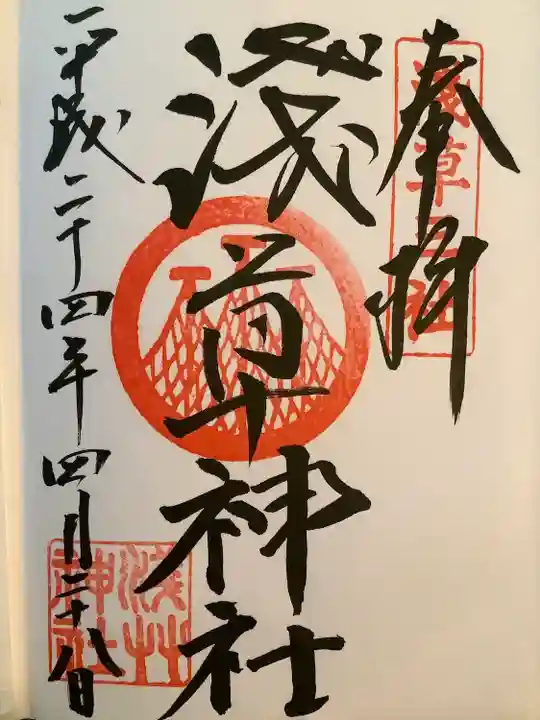 奉拝
浅草三社
淺草神社
浅草神社
平成二十四年四月二十八日